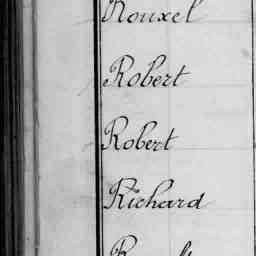 Rouxel
Robert
Robert
Richard